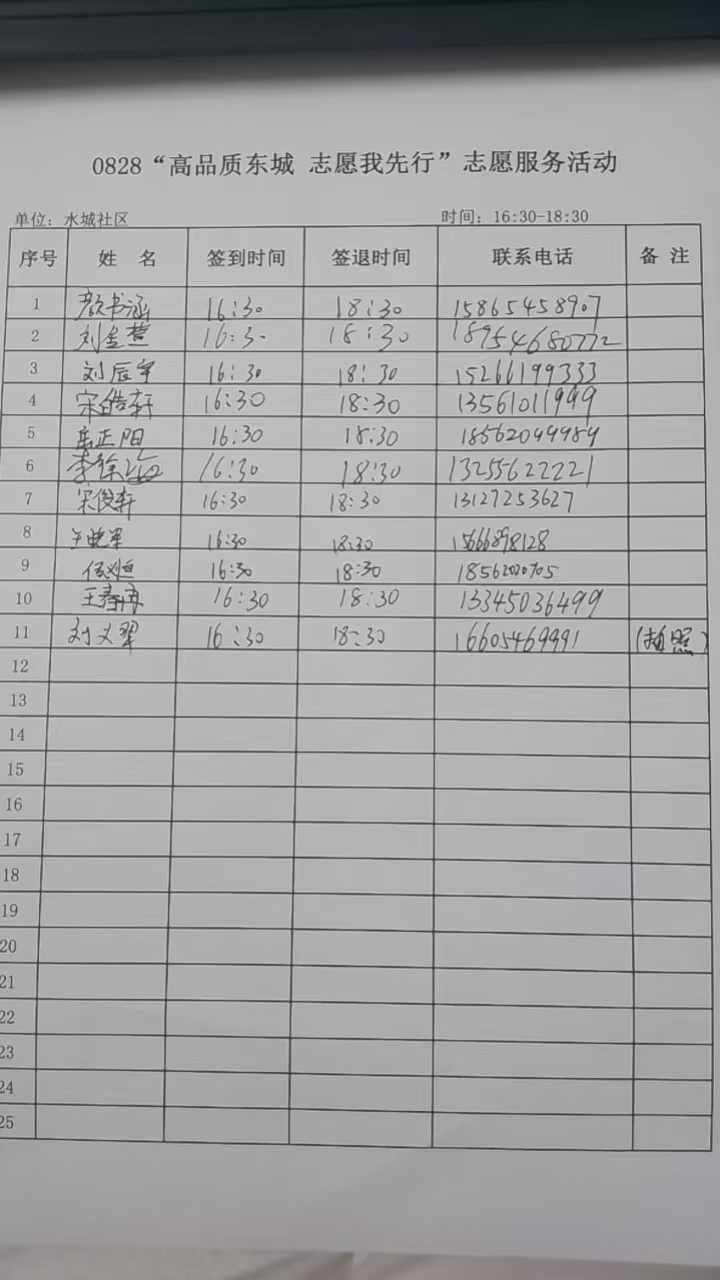 0828“高品质东城 志愿我先行”志愿服务活动
单位：水城社区 时间：16:30-18:30
序号 姓 名 签到时间 签退时间 联系电话 备 注
1 颜书涵 16:30 18:30 15865458907
2 刘 16:30 18:30 18954680772
3 刘辰宇 16:30 18:30 15266199333
4 宋皓轩 16:30 18:30 13561011999
5 岳正阳 16:30 18:30 18562099989
6 李徐 16:30 18:30 13255622221
7 宋俊轩 16:30 18:30 13127253627
8 王晓军 16:30 18:30 15666898128
9 16:30 18:30 18562020705
10 王春 16:30 18:30 13345036499
11 刘文翠 16:30 18:30 16605469991 (拍照)
12
13
14
15
16
17
18
19
20
21
22
23
24
25